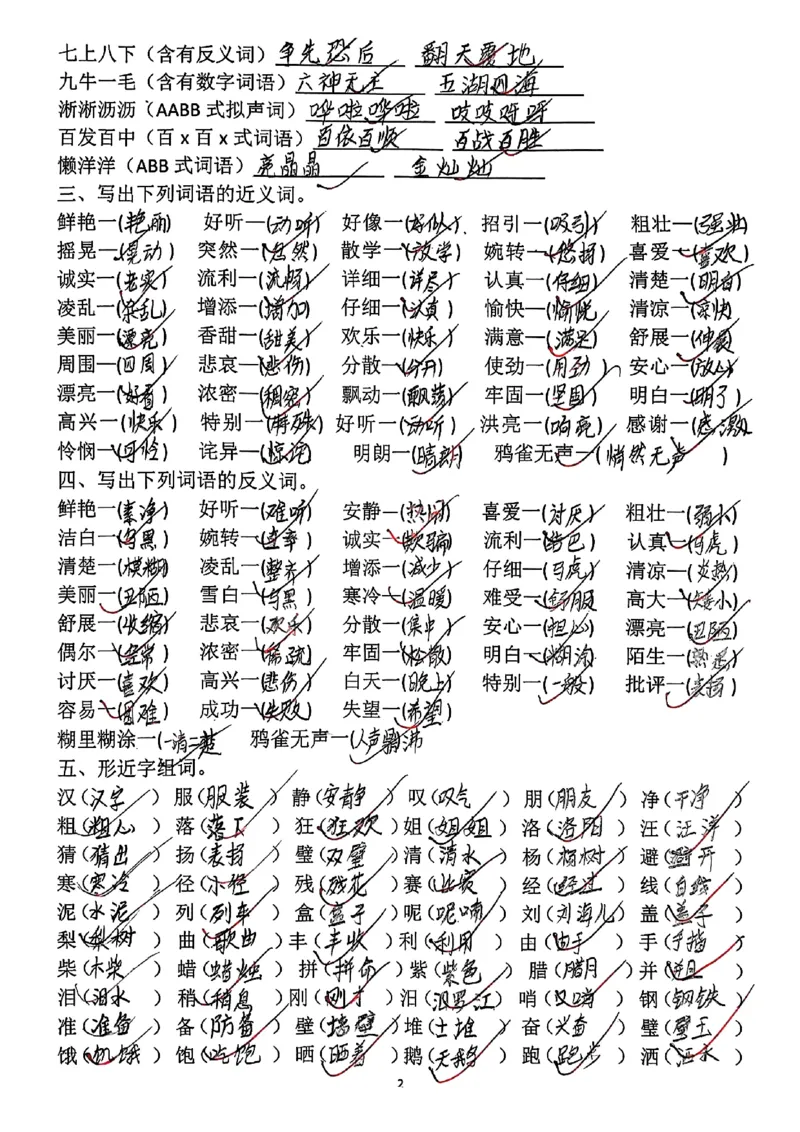 七上八下（含有反义词）争先恐后 翻天覆地
九牛一毛（含有数字词语）六神无主 五湖四海
淅淅沥沥（AABB 式拟声词）哗啦哗啦 吱吱呀呀
百发百中（百 x 百 x 式词语）百依百顺 百战百胜
懒洋洋（ABB 式词语）亮晶晶 金灿灿
三、写出下列词语的近义词。
鲜艳—(艳丽) 好听—(动听) 好像—(好似) 招引—(吸引) 粗壮—(强壮)
摇晃—(晃动) 突然—(忽然) 散学—(放学) 婉转—(悠扬) 喜爱—(喜欢)
诚实—(老实) 流利—(流畅) 详细—(详尽) 认真—(仔细) 清楚—(明白)
凌乱—(杂乱) 增添—(增加) 仔细—(认真) 愉快—(愉悦) 清凉—(凉快)
美丽—(漂亮) 香甜—(甜美) 欢乐—(快乐) 满意—(满足) 舒展—(伸展)
周围—(四周) 悲哀—(悲伤) 分散—(分开) 使劲—(用劲) 安心—(放心)
漂亮—(好看) 浓密—(稠密) 飘动—(飘荡) 牢固—(坚固) 明白—(明了)
高兴—(快乐) 特别—(特殊) 好听—(动听) 洪亮—(响亮) 感谢—(感激)
怜悯—(可怜) 诧异—(惊诧) 明朗—(晴朗) 鸦雀无声—(悄然无声)
四、写出下列词语的反义词。
鲜艳—(素净) 好听—(难听) 安静—(热闹) 喜爱—(讨厌) 粗壮—(弱小)
洁白—(乌黑) 婉转—(直率) 诚实—(欺骗) 流利—(结巴) 认真—(马虎)
清楚—(模糊) 凌乱—(整齐) 增添—(减少) 仔细—(马虎) 清凉—(炎热)
美丽—(丑陋) 雪白—(乌黑) 寒冷—(温暖) 难受—(舒服) 高大—(矮小)
舒展—(收缩) 悲哀—(欢乐) 分散—(集中) 安心—(担心) 漂亮—(丑陋)
偶尔—(经常) 浓密—(稀疏) 牢固—(松散) 明白—(糊涂) 陌生—(熟悉)
讨厌—(喜欢) 高兴—(悲伤) 白天—(晚上) 特别—(一般) 批评—(表扬)
容易—(困难) 成功—(失败) 失望—(希望)
糊里糊涂—(一清二楚 鸦雀无声—(人声鼎沸
五、形近字组词。
汉(汉字) 服(服装) 静(安静) 叹(叹气) 朋(朋友) 净(干净)
粗(粗心) 落(落下) 狂(狂欢) 姐(姐姐) 洛(洛阳) 汪(汪洋)
猜(猜出) 扬(表扬) 璧(双璧) 清(清水) 杨(杨树) 避(避开)
寒(寒冷) 径(小径) 残(残花) 赛(比赛) 经(经过) 线(白线)
泥(水泥) 列(列车) 盒(盒子) 呢(呢喃) 刘(刘海儿) 盖(盖子)
梨(梨树) 曲(歌曲) 丰(丰收) 利(利用) 由(由于) 手(手指)
柴(木柴) 蜡(蜡烛) 拼(拼命) 紫(紫色) 腊(腊月) 并(并且)
泪(泪水) 稍(稍息) 刚(刚才) 汨(汨罗江) 哨(口哨) 钢(钢铁)
准(准备) 备(防备) 壁(墙壁) 堆(土堆) 奋(兴奋) 璧(璧玉)
饿(饥饿) 饱(吃饱) 晒(晒着) 鹅(天鹅) 跑(跑步) 洒(洒水)
2